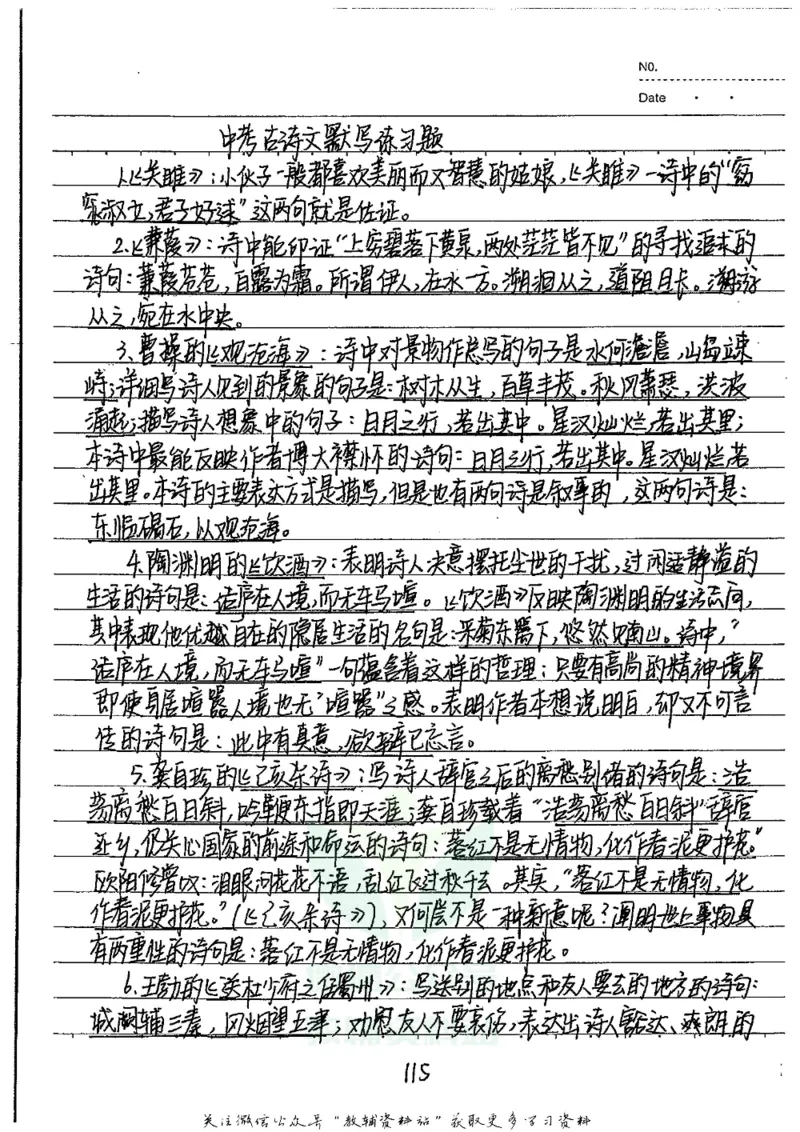 NO.
Date
中考古诗文默写练习题
1.《关雎》:小伙子一般都喜欢美丽而又智慧的姑娘,《关雎》一诗中的"窈
窕淑女,君子好逑"这两句就是佐证。
2.《蒹葭》:诗中能印证"上穷碧落下黄泉,两处茫茫皆不见"的寻找追求的
诗句:蒹葭苍苍,白露为霜。所谓伊人,在水一方。溯洄从之,道阻且长。溯游
从之,宛在水中央。
3.曹操的《观沧海》:诗中对景物作总写的句子是水何澹澹,山岛竦
峙;详细写诗人见到的景象的句子是:树木丛生,百草丰茂。秋风萧瑟,洪波
涌起;描写诗人想象中的句子:日月之行,若出其中。星汉灿烂,若出其里;
本诗中最能反映作者博大襟怀的诗句:日月之行,若出其中。星汉灿烂,若
出其里。本诗的主要表达方式是描写,但是也有两句诗是叙事的,这两句诗是:
东临碣石,以观沧海。
4.陶渊明的《饮酒》:表明诗人决意摆托尘世的干扰,过闲适静谧的
生活的诗句是:结庐在人境,而无车马喧。《饮酒》反映陶渊明的生活志向,
其中表现他优越自在的隐居生活的名句是:采菊东篱下,悠然见南山。诗中,"
结庐在人境,而无车马喧"一句蕴含着这样的哲理:只要有高尚的精神境界
即使身居喧嚣人境也无"喧嚣"之感。表明作者本想说明白,却又不可言
传的诗句是:此中有真意,欲辩已忘言。
5.龚自珍的《己亥杂诗》:写诗人辞官之后的离愁别绪的诗句是:浩
荡离愁白日斜,吟鞭东指即天涯;龚自珍载着"浩荡离愁白日斜"辞官
还乡,仍关心国家的前途和命运的诗句:落红不是无情物,化作春泥更护花。"
欧阳修曾叹:泪眼问花花不语,乱红飞过秋千去。其实,"落红不是无情物,化
作春泥更护花。"(《己亥杂诗》),又何尝不是一种新意呢?阐明世上事物具
有两重性的诗句是:落红不是无情物,化作春泥更护花。
6.王勃的《送杜少府之任蜀州》:写送别的地点和友人要去的地方的诗句:
城阙辅三秦,风烟望五津;劝慰友人不要哀伤,表达出诗人豁达、爽朗的
115
关注微信公众号"教辅资料站"获取更多学习资料